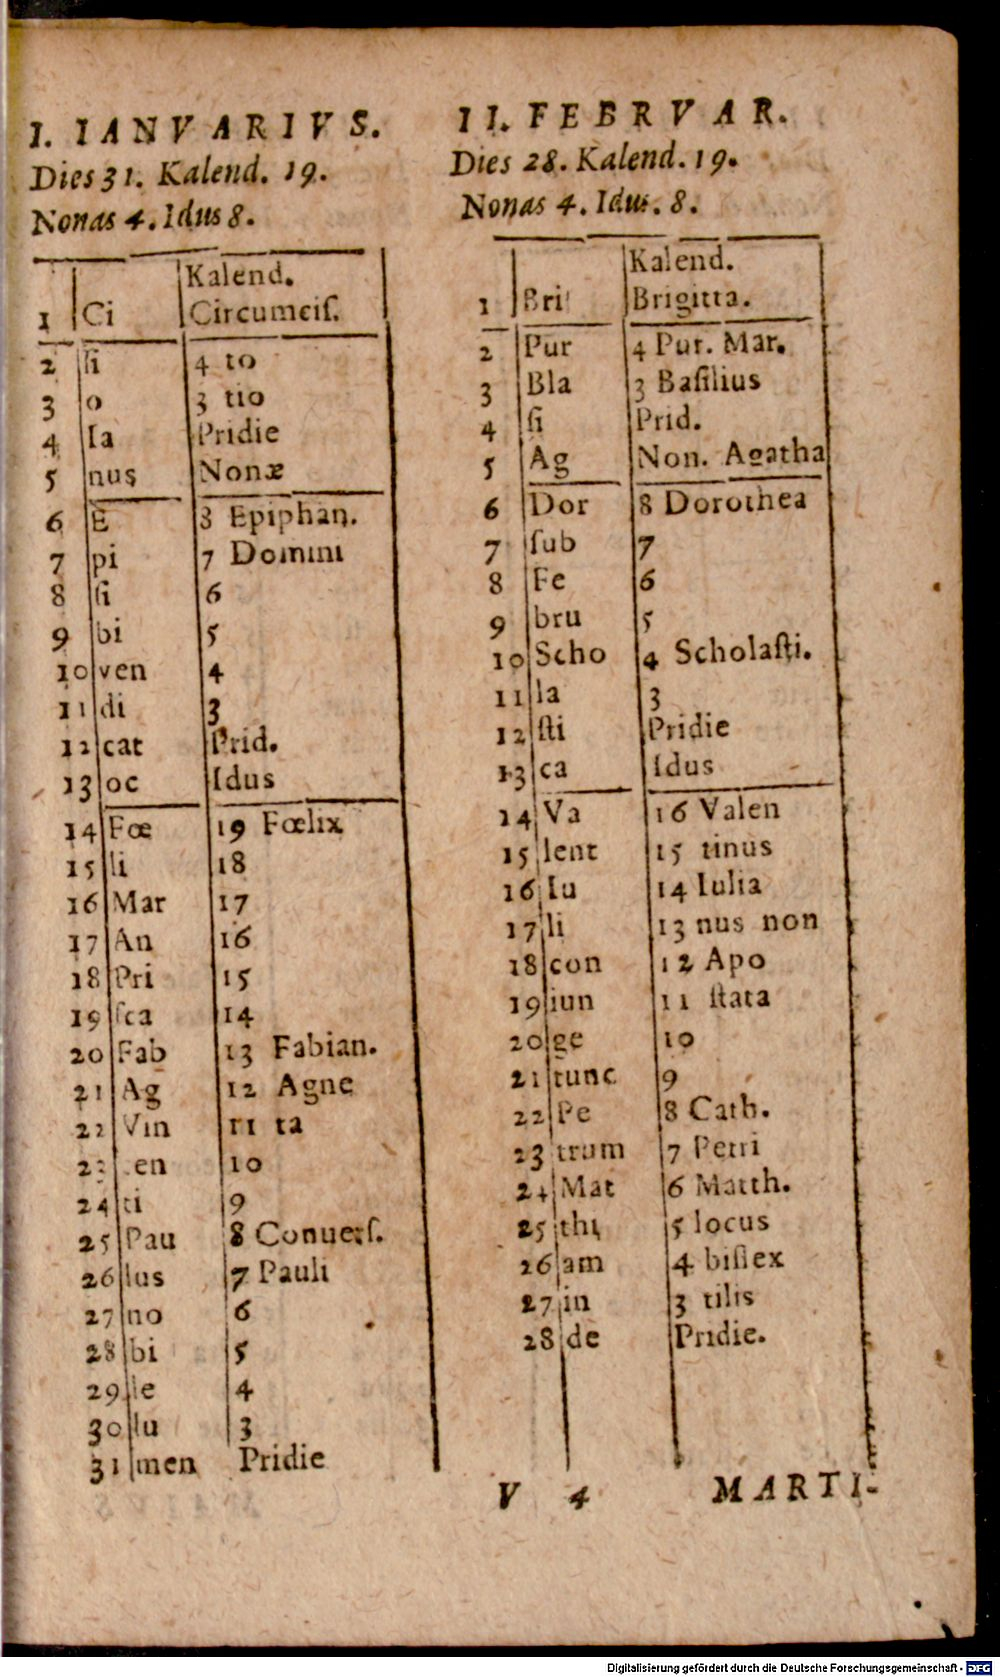 I. IANVARIVS.
Dies 31. Kalend. 19.
Nonas 4. Idus 8.
Kalend.
1 Ci Circumciſ.
2 ſi 4 to
3 o 3 tio
4 Ia Pridie
5 nus Nonæ
6 E 8 Epiphan.
7 pi 7 Domini
8 ſi 6
9 bi 5
10 ven 4
11 di 3
12 cat Prid.
13 oc Idus
14 Fœ 19 Fœlix
15 li 18
16 Mar 17
17 An 16
18 Pri 15
19 ſca 14
20 Fab 13 Fabian.
21 Ag 12 Agne
22 Vin 11 ta
23 cen 10
24 ti 9
25 Pau 8 Conuerſ.
26 lus 7 Pauli
27 no 6
28 bi 5
29 le 4
30 lu 3
31 men Pridie
II. FEBRVAR.
Dies 28. Kalend. 19.
Nonas 4. Idus. 8.
Kalend.
1 Bri Brigitta.
2 Pur 4 Pur. Mar.
3 Bla 3 Baſilius
4 ſi Prid.
5 Ag Non. Agatha
6 Dor 8 Dorothea
7 ſub 7
8 Fe 6
9 bru 5
10 Scho 4 Scholaſti.
11 la 3
12 ſti Pridie
13 ca Idus
14 Va 16 Valen
15 lent 15 tinus
16 Iu 14 Iulia
17 li 13 nus non
18 con 12 Apo
19 iun 11 ſtata
20 ge 10
21 tunc 9
22 Pe 8 Cath.
23 trum 7 Petri
24 Mat 6 Matth.
25 thi 5 locus
26 am 4 biſſex
27 in 3 tilis
28 de Pridie.
V 4 MARTI-
Digitalisierung gefördert durch die Deutsche Forschungsgemeinschaft - DFG